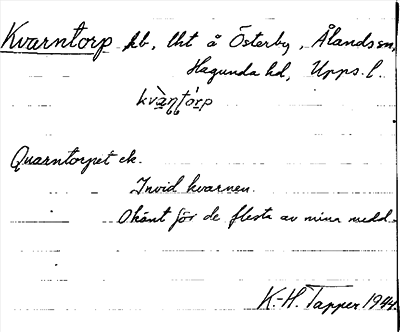 Kvarntorp kb, lht å Österby, Ålands sn,
Hagunda hd, Upps. l.
kvàṇtórp
Quarntorpet ek.
Invid kvarnen.
Okänt för de flesta av mina medd.
K.-H. Tapper 1944.